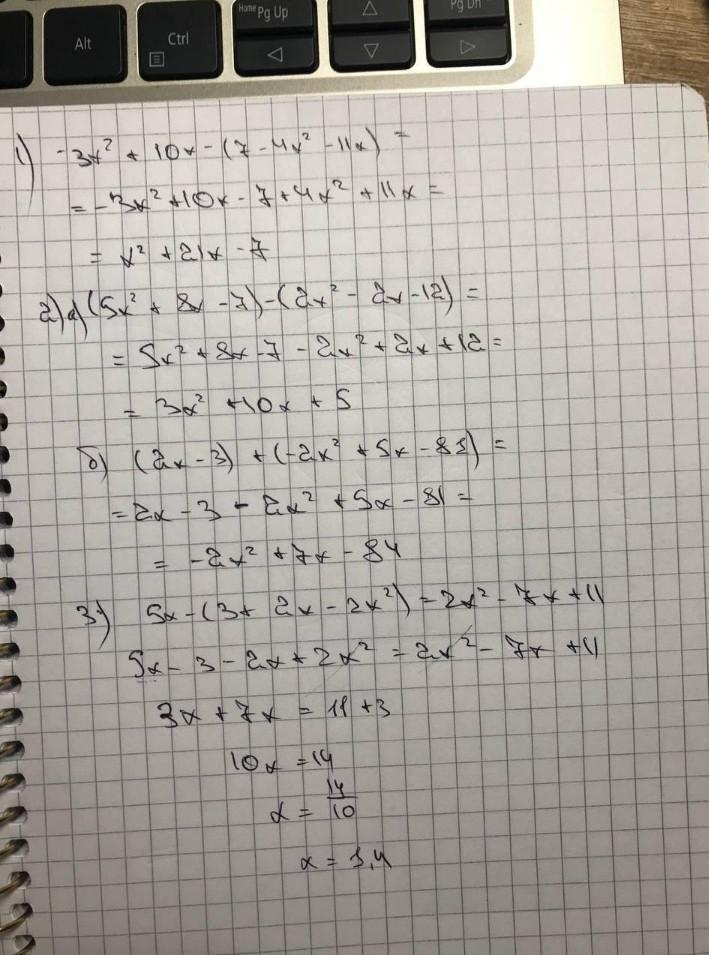 Home Pg Up
Pg Dn
Alt
Ctrl
1) -3x² + 10x - (7 - 4x² - 11x) =
= -3x² + 10x - 7 + 4x² + 11x =
= x² + 21x - 7
2) а) (5x² + 8x - 7) - (2x² - 2x - 12) =
= 5x² + 8x - 7 - 2x² + 2x + 12 =
= 3x² + 10x + 5
б) (2x - 3) + (-2x² + 5x - 81) =
= 2x - 3 - 2x² + 5x - 81 =
= -2x² + 7x - 84
3) 5x - (3 + 2x - 2x²) = 2x² - 7x + 11
5x - 3 - 2x + 2x² = 2x² - 7x + 11
3x + 7x = 11 + 3
10x = 14
x = 14/10
x = 1,4